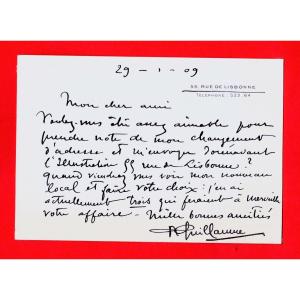 29-1-09
55, RUE DE LISBONNE
TÉLÉPHONE : 523.64
Mon cher ami
Voulez-vous être assez aimable pour
prendre note de mon changement
d'adresse et m'envoyer dorénavant
l'Illustration 55 rue de Lisbonne ?
quand viendrez vous voir mon nouveau
local et faire votre choix : j'en ai
actuellement trois qui feraient à merveille
votre affaire - Mille bonnes amitiés
Guillaume